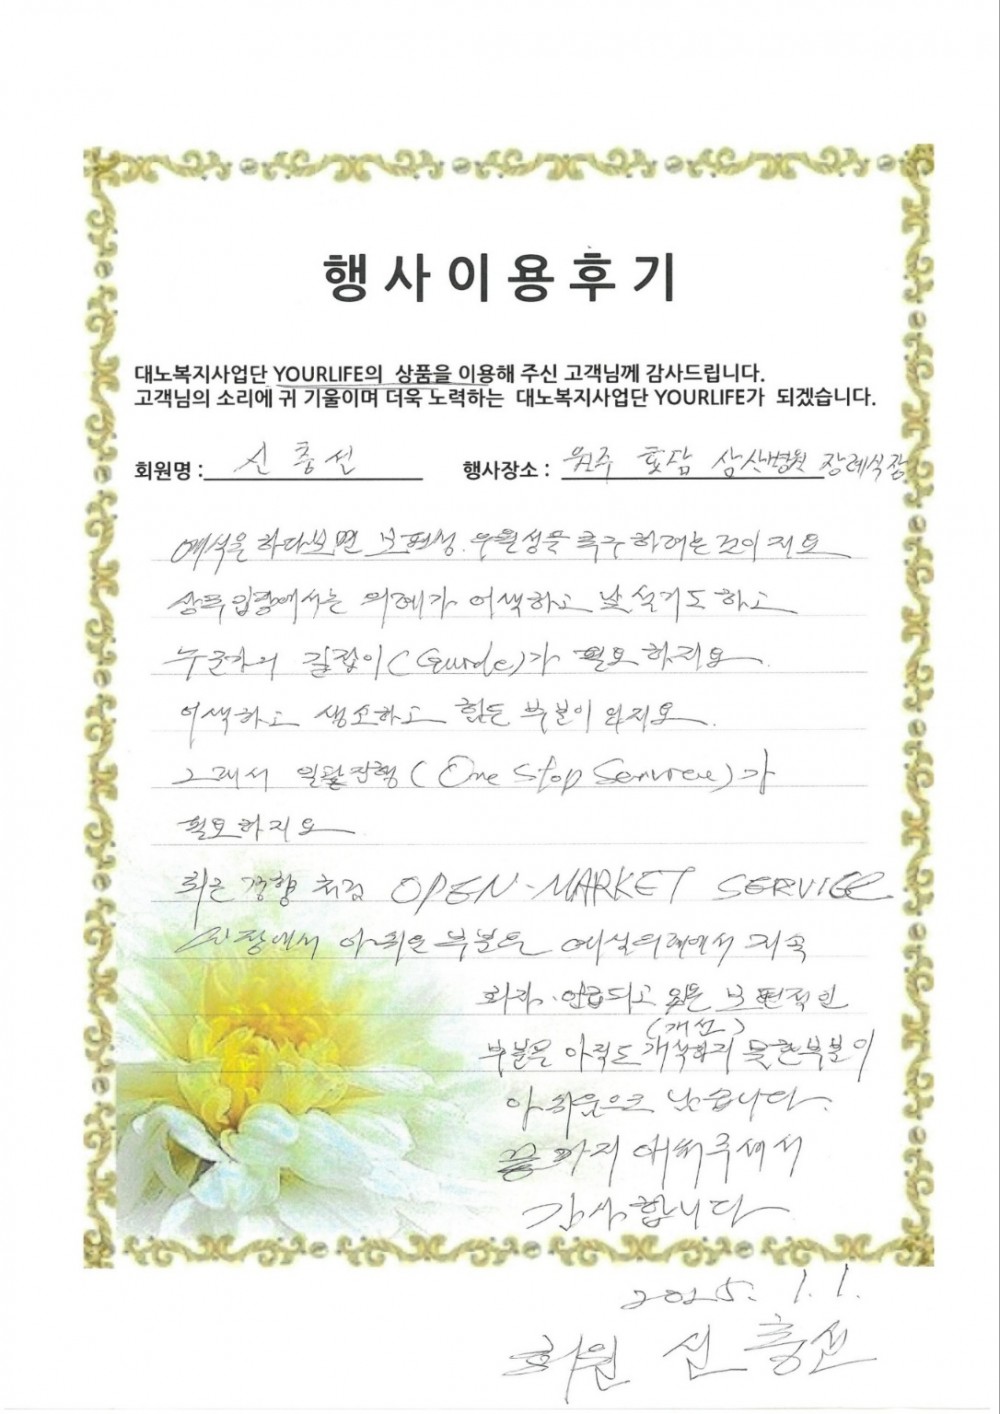 행사이용후기
대노복지사업단 YOURLIFE의 상품을 이용해 주신 고객님께 감사드립니다.
고객님의 소리에 귀 기울이며 더욱 노력하는 대노복지사업단 YOURLIFE가 되겠습니다.
회원명 : 신충선 행사장소 : 원주 효담 삼산병원 장례식장
예식을 하다보면 보편성. 우월성을 추구하려는 것이지요
상주입장에서는 의례가 어색하고 낯설기도 하고
누군가의 길잡이(Guide)가 필요하지요.
어색하고 생소하고 힘든 부분이 와지요.
그래서 일괄진행(One Stop Service)가
필요하지요
최근 경향처럼 OPEN-MARKET SERVICE
시장에서 아쉬운 부분도 예식의례에서 지속
언급되고 있는 보편적인
(개선)
부분은 아직도 개척되지 못한부분이
아쉬움으로 남습니다.
끝까지 애써주셔서
감사합니다
2025. 1. 1.
회원 신충선